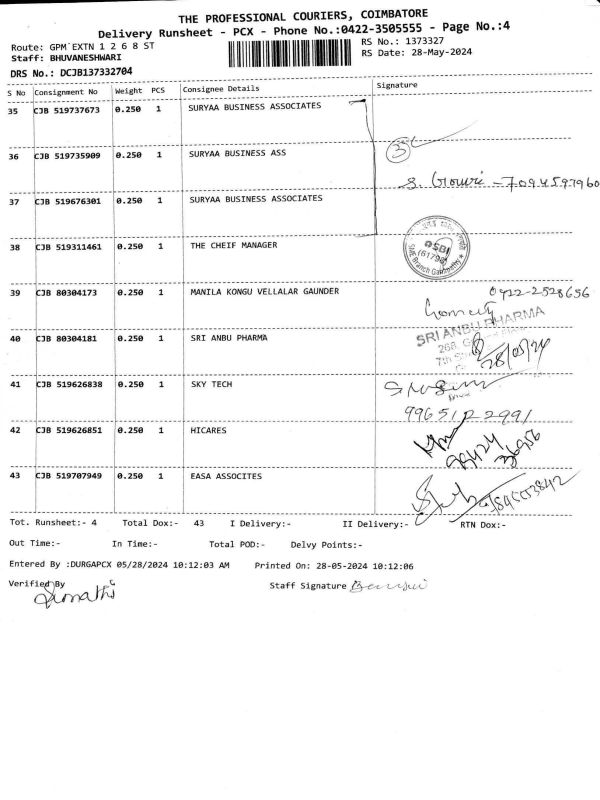 THE PROFESSIONAL COURIERS, COIMBATORE
Delivery Runsheet - PCX - Phone No.:0422-3505555 - Page No.:4
Route: GPM EXTN 1 2 6 8 ST
RS No.: 1373327
Staff: BHUVANESHWARI
RS Date: 28-May-2024
DRS No.: DCJB137332704
S No Consignment No Weight PCS Consignee Details Signature
35 CJB 519737673 0.250 1 SURYAA BUSINESS ASSOCIATES
36 CJB 519735909 0.250 1 SURYAA BUSINESS ASS
3
S. Gowri - 7094597960
37 CJB 519676301 0.250 1 SURYAA BUSINESS ASSOCIATES
38 CJB 519311461 0.250 1 THE CHEIF MANAGER
SBI
(61798)
SME Branch Ganapathy
39 CJB 80304173 0.250 1 MANILA KONGU VELLALAR GAUNDER
0422-2528656
40 CJB 80304181 0.250 1 SRI ANBU PHARMA
SRI ANBU PHARMA
28/05/24
41 CJB 519626838 0.250 1 SKY TECH
9965122991
42 CJB 519626851 0.250 1 HICARES
43 CJB 519707949 0.250 1 EASA ASSOCITES
Tot. Runsheet:- 4 Total Dox:- 43 I Delivery:- II Delivery:- RTN Dox:-
Out Time:- In Time:- Total POD:- Delvy Points:-
Entered By :DURGAPCX 05/28/2024 10:12:03 AM Printed On: 28-05-2024 10:12:06
Verified By
Staff Signature